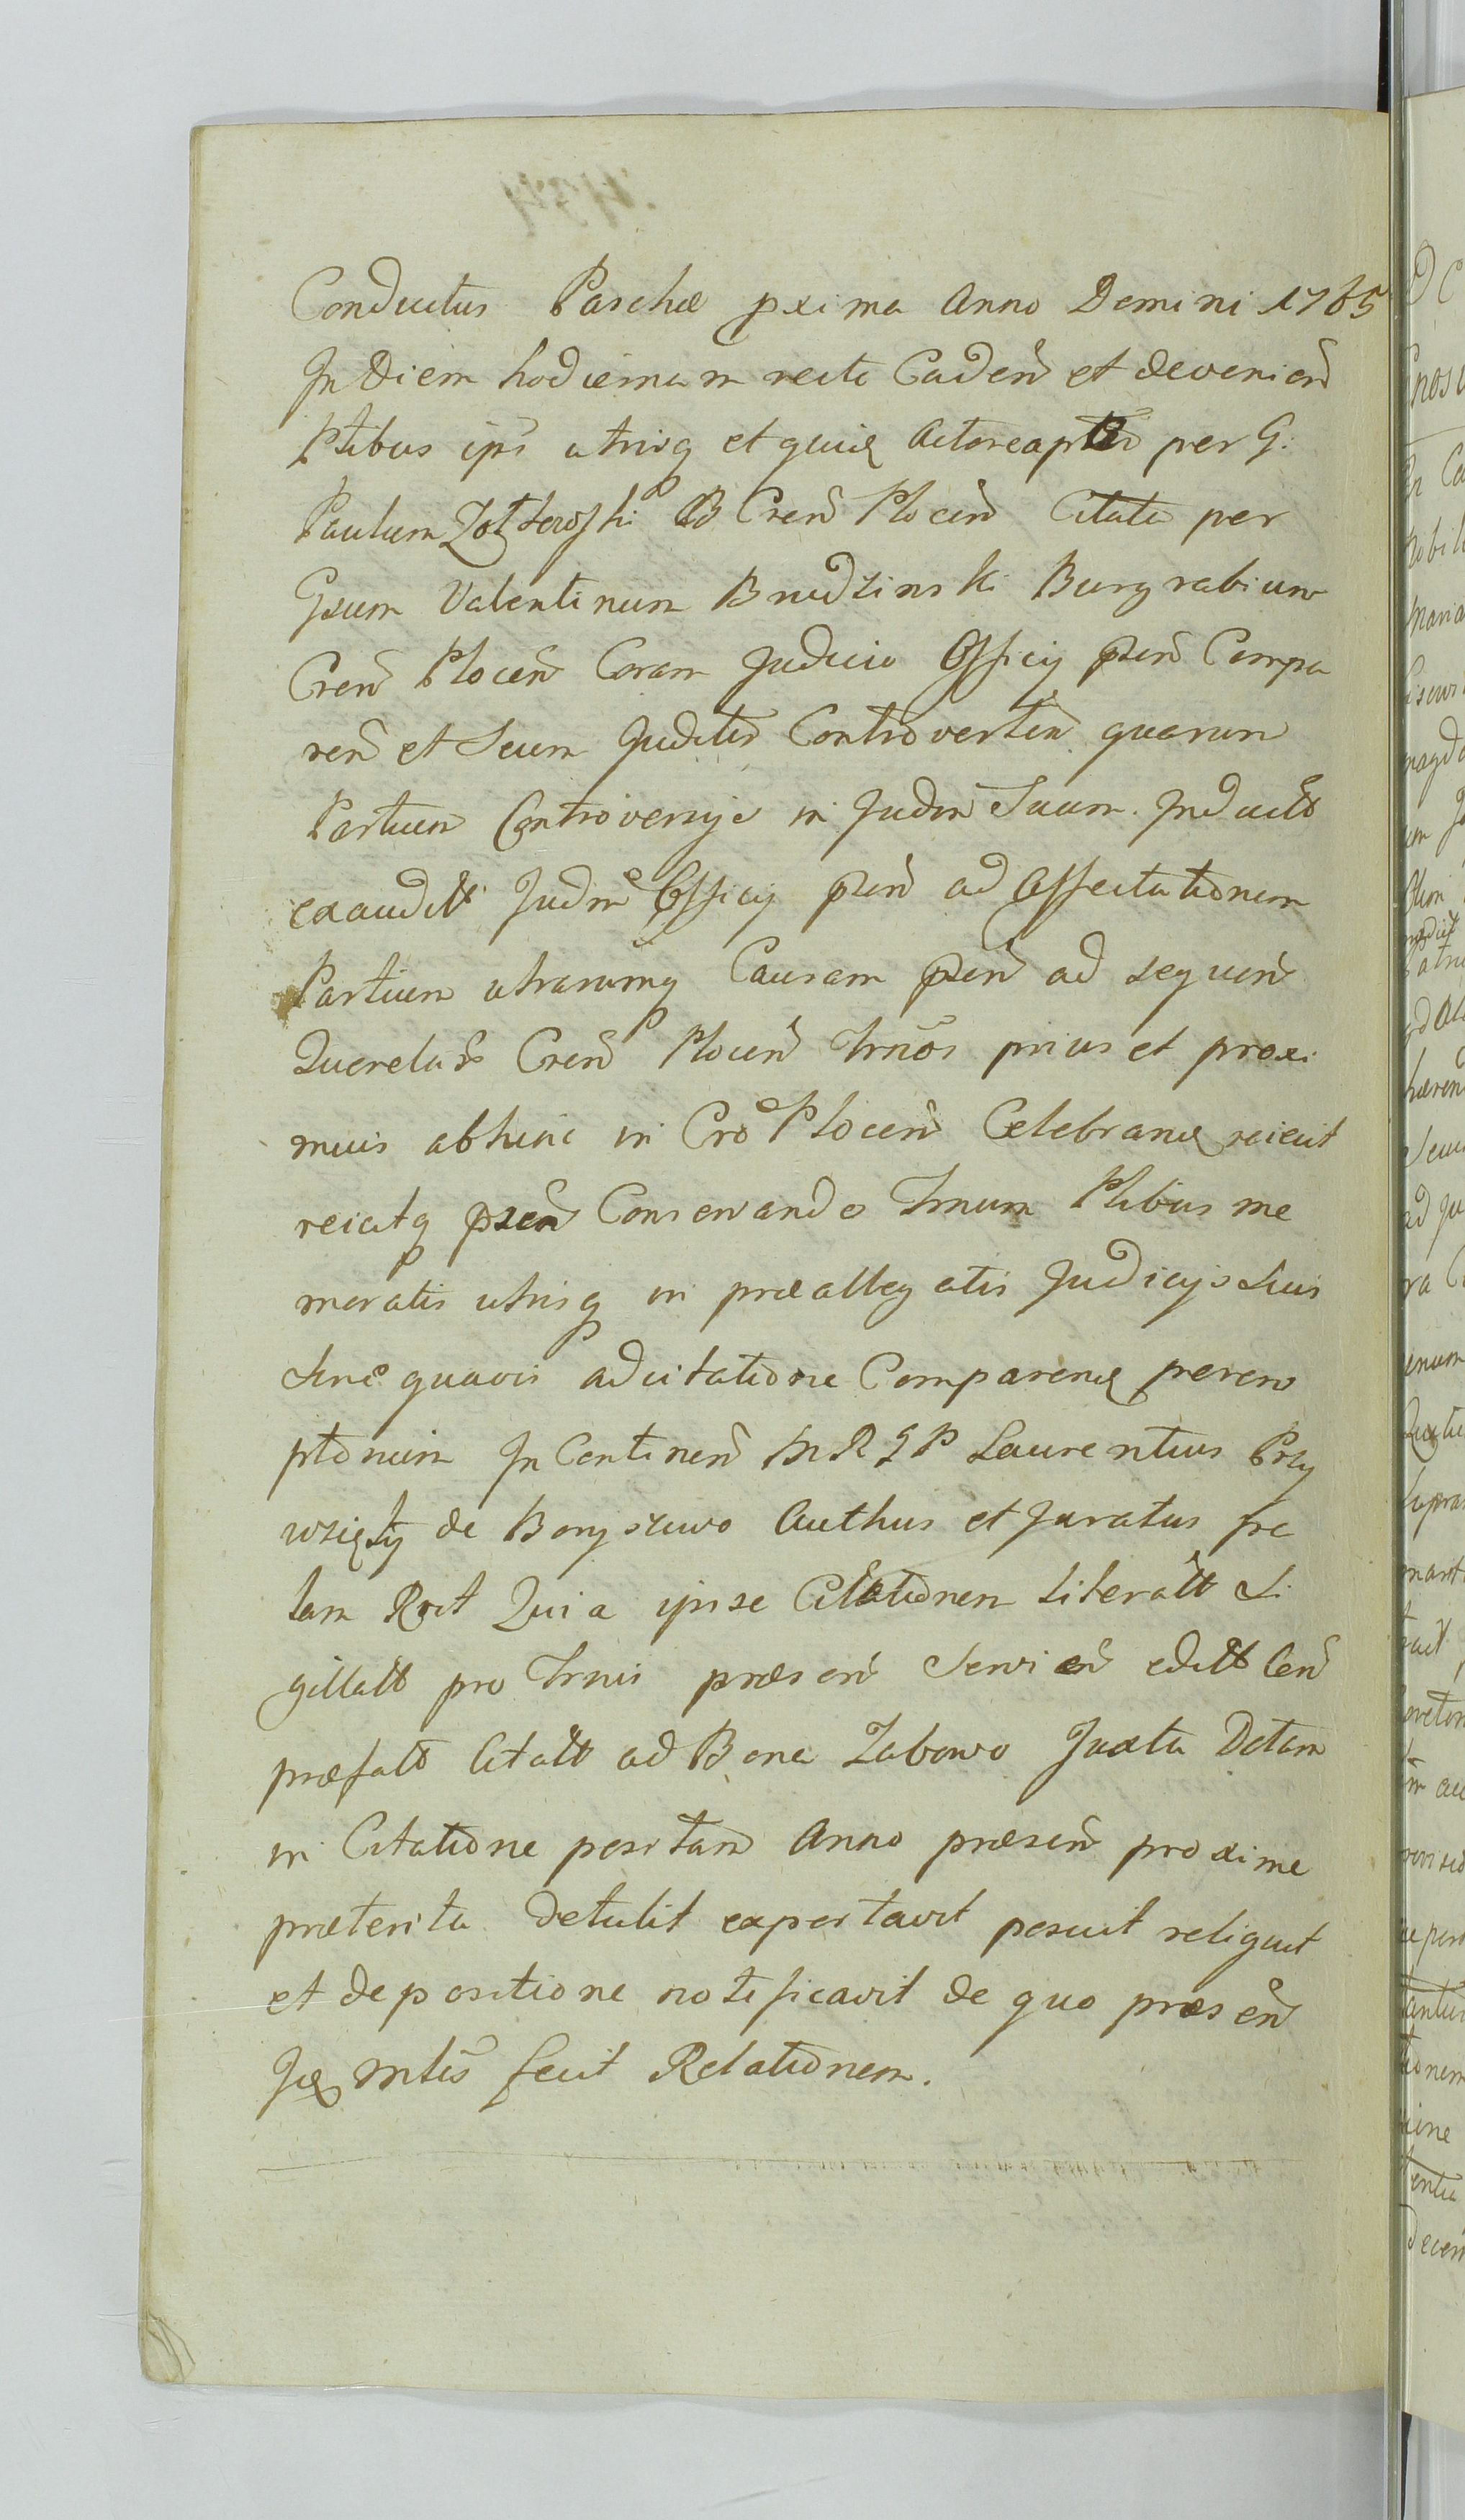 Conductus Paschæ pxima Anno Domini 1765
In Diem hodiernam recte Caden et devenien
Ptibus ipis utrisq et quidem Actorea per G:
Paulum Zołtowski B Cren Plocen Citata per
Gsum Valentinum Brudzinski Burgrabium
Cren Plocen Coram Judicio Officij psen Compa
ren et Secum Juditer Controverten quarum
Partium Controversijs in Judm Suum Induct
exaudit Judm Officij psen ad Affectationem
Partium utrarumq Causam psen ad sequen
Querelar Cren Plocen Trnos prius et proxi
mius abhinc in Cro Plocen Celebrand reiecit
reicitq psen Conservando Trnum Ptibus me
moratis utrisq in præallegatis Judicijs Suis
Sine quavis adcitatione Comparend perem
ptorium In Continen M R G P Laurentius Przy
wzięty de Boryszewo Authus et Juratus pre
lam Rcit Quia ipse Citationem Literatt Si
gillatt pro Trnis præsen Servien editt Cen
præfatt Citatt ad Bona Zabowo Juxta Datam
in Citatione positam Anno præsen proxime
præterita detulit exportavit posuit reliquit
et depositione notificavit de quo præsen
Jux mltis fecit Relationem.